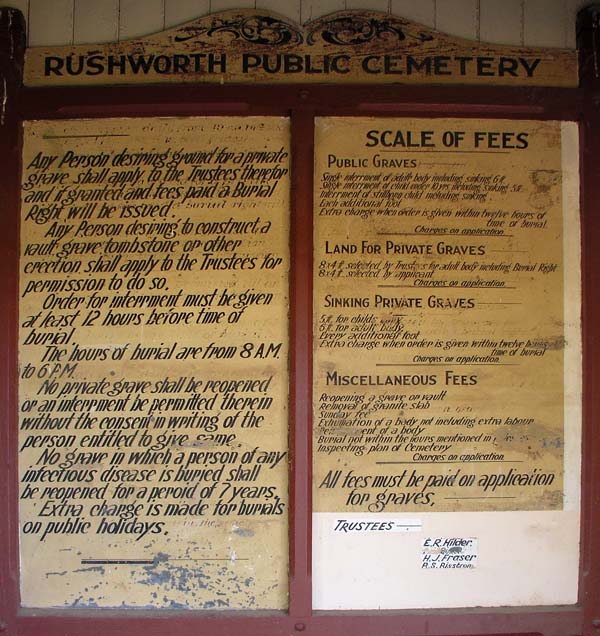 RUSHWORTH PUBLIC CEMETERY
Any Person desiring ground for a private
grave shall apply to the Trustees therefor
and if granted and fees paid a Burial
Right will be issued.
Any Person desiring to construct a
vault, grave, tombstone or other
erection shall apply to the Trustees for
permission to do so.
Order for interment must be given
at least 12 hours before time of
burial.
The hours of burial are from 8 A.M.
to 6 P.M.
No private grave shall be reopened
or an interrment be permitted therein
without the consent in writing of the
person entitled to give same.
No grave in which a person of any
infectious disease is buried shall
be reopened for a peroid of 7 years.
Extra charge is made for burials
on public holidays.
SCALE OF FEES
PUBLIC GRAVES
Single interrment of adult body including sinking 6 ft.
Single interment of child under 10 yrs including sinking 5 ft.
Interrment of stillborn child including sinking
Each additional foot
Extra charge when order is given within twelve hours of
time of burial.
Charges on application
LAND FOR PRIVATE GRAVES
8x4 ft selected by Trustees for adult body including Burial Right
8x4 ft. selected by applicant
Charges on application
SINKING PRIVATE GRAVES
5 ft. for childs body
6 ft. for adult body
Every additional foot
Extra charge when order is given within twelve hours
time of burial
Charges on application
MISCELLANEOUS FEES
Reopening a grave or vault
Removal of granite slab
Sunday fee
Exhumation of a body not including extra labour
of a body
Burial not within the hours mentioned in
Inspecting plan of Cemetery
Charges on application
All fees must be paid on application
for graves.
TRUSTEES
E.R. Hilder.
H.J. Fraser
R.S. Risstrom